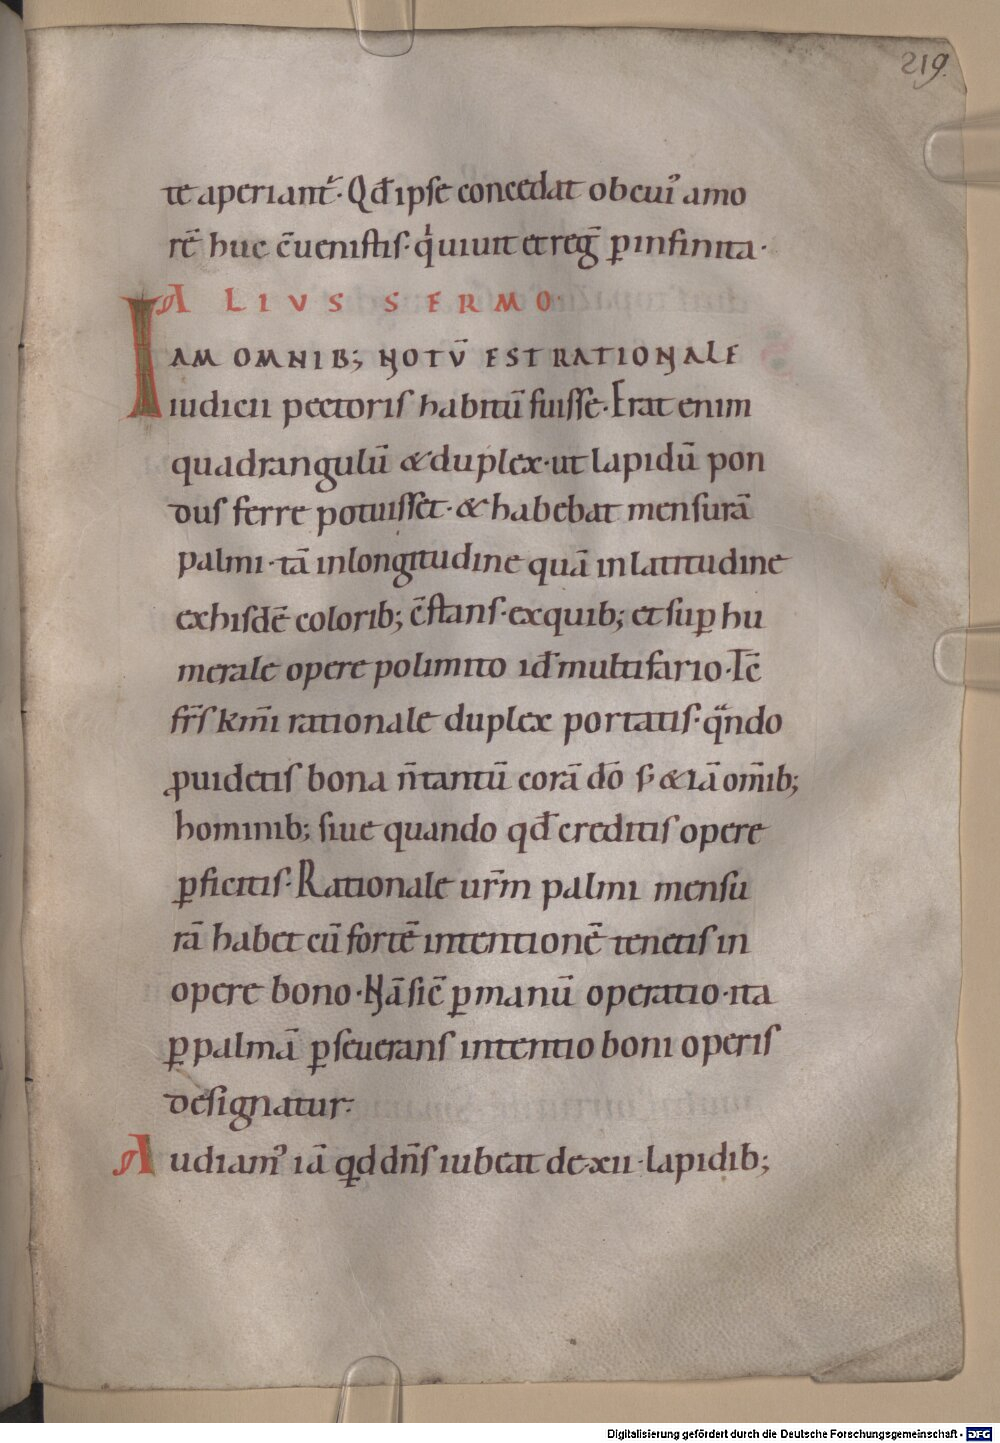 219.
te aperiant᷑· Qđ ipse concedat ob cuiꝰ amo
rē huc c̄uenistis· q̇ uiuit et reḡ ꝑ infinita·
ALIVS SERMO·
IAM OMNIB; NOTV̄ EST RATIONALE
iudicii pectoris habitū fuisse· Erat enim
quadrangulū & duplex· ut lapidū pon
dus ferre potuisset· & habebat mensurā
palmi· tā in longitudine quā in latitudine
ex hisdē colorib; c̄stans· ex quib; et suꝑ hu
merale opere polimito id̄ multifario· Ic̄
fr̄s km̄i rationale duplex portatis· qn̄do
ꝓuidetis bona n̄ tantū corā dō s· & iā om̄ib;
hominib; siue quando qđ creditis opere
ꝑficitis· Rationale ur̄m palmi mensu
rā habet cū fortē intentionē tenetis in
opere bono· Nā sic̄ ꝑ manū operatio· ita
ꝑ palmā ꝑseuerans intentio boni operis
designatur·
Audiamꝰ iā qd dn̄s iubeat de·xii·lapidib;
Digitalisierung gefördert durch die Deutsche Forschungsgemeinschaft - DFG